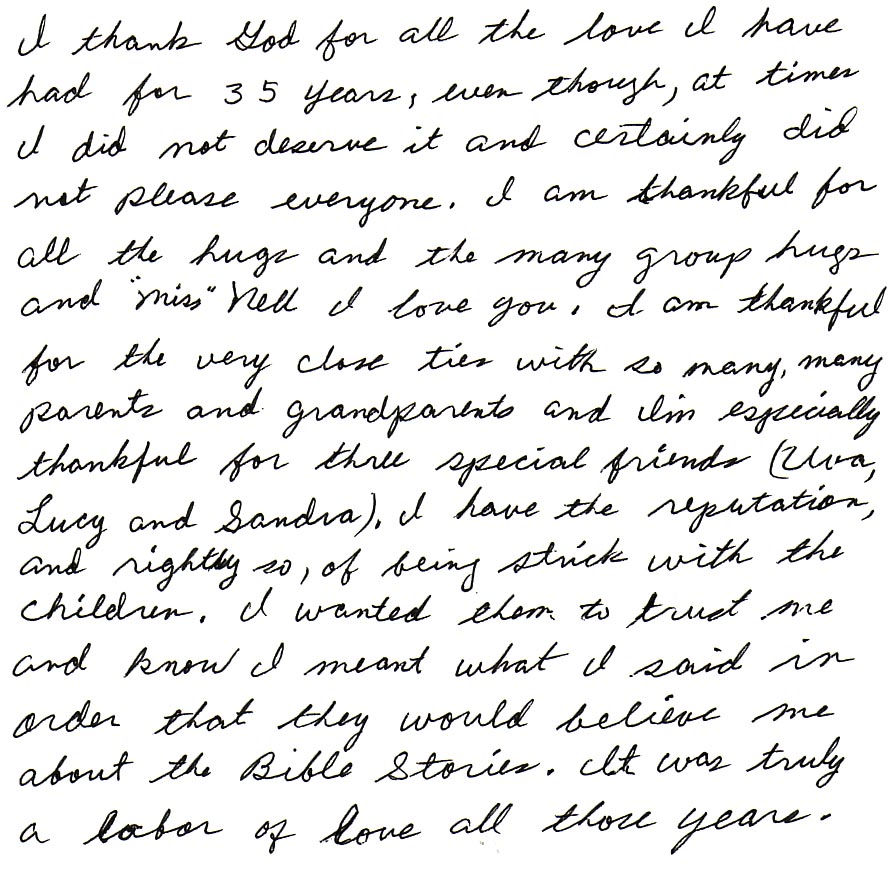 I thank God for all the love I have
had for 35 years, even though, at times
I did not deserve it and certainly did
not please everyone. I am thankful for
all the hugs and the many group hugs
and "Miss" Nell I love you. I am thankful
for the very close ties with so many, many
parents and grandparents and I'm especially
thankful for three special friends (Uva,
Lucy and Sandra). I have the reputation,
and rightly so, of being strick with the
children. I wanted them to trust me
and know I meant what I said in
order that they would believe me
about the Bible Stories. It was truly
a labor of love all those years.